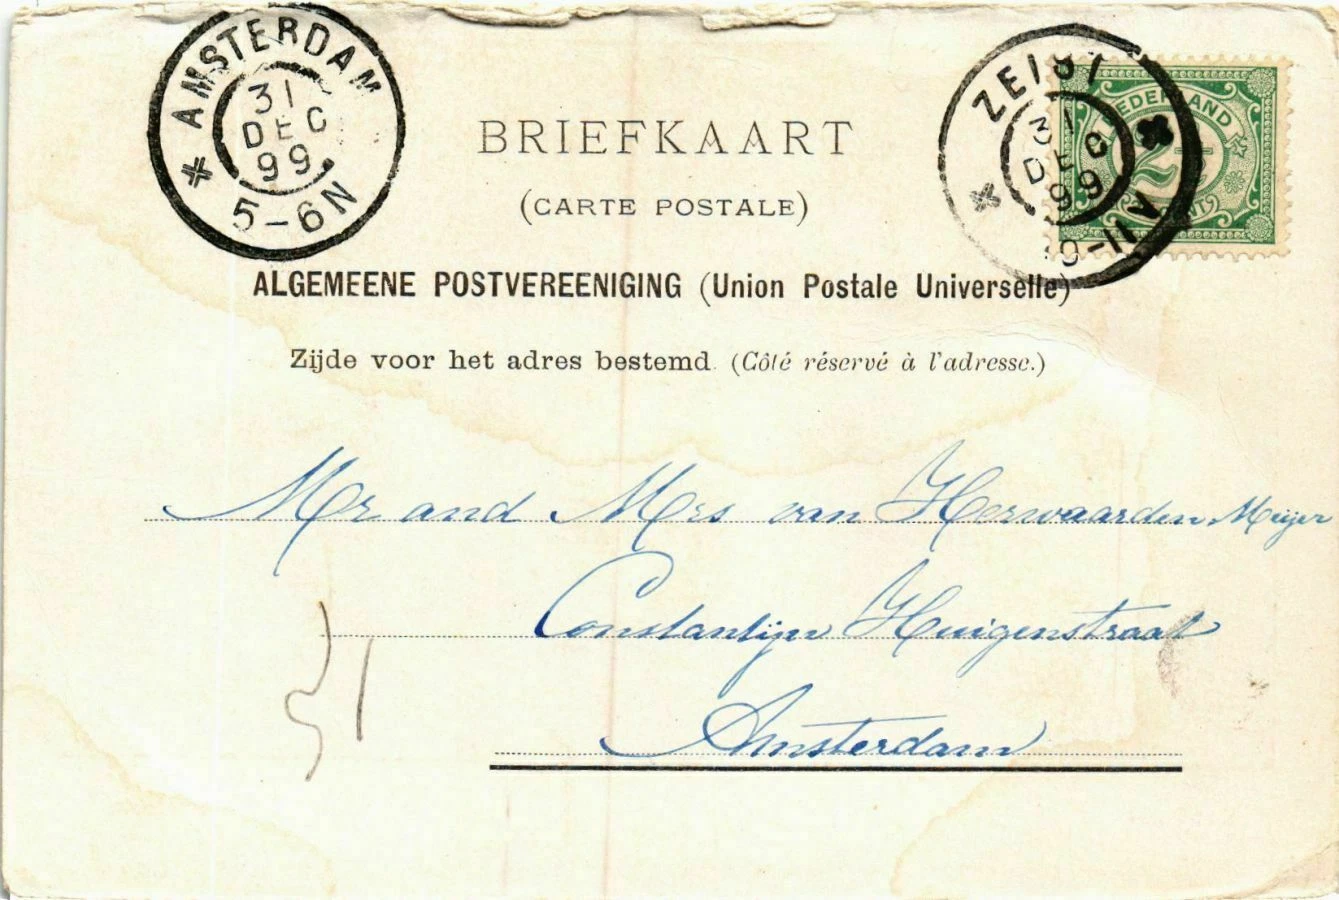 AMSTERDAM
31
DEC
99
5-6N
ZEIST
31
DEC
99
9-11V
NEDERLAND
2½
CENT
BRIEFKAART
(CARTE POSTALE)
ALGEMEENE POSTVEREENIGING (Union Postale Universelle)
Zijde voor het adres bestemd. (Côté réservé à l'adresse.)
Mr and Mrs van Herwaarden Meijer
Constantijn Huigenstraat
Amsterdam